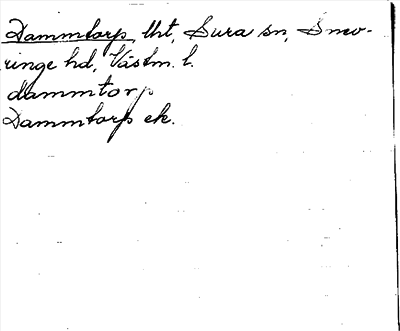 Dammtorp, lht, Sura sn, Snev-
ringe hd, Västm. l.
dammtorp
Dammtorp ek.